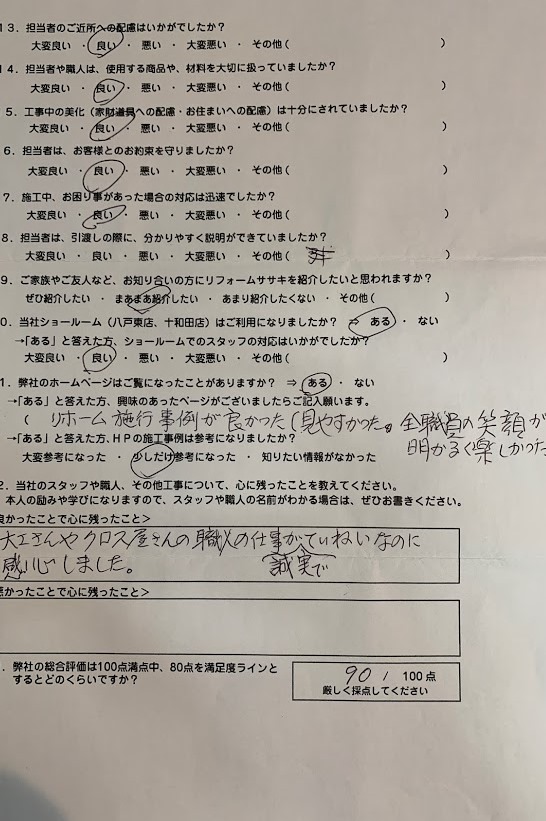 13. 担当者のご近所への配慮はいかがでしたか?
大変良い ・ 良い ・ 悪い ・ 大変悪い ・ その他( )
14. 担当者や職人は、使用する商品や、材料を大切に扱っていましたか?
大変良い ・ 良い ・ 悪い ・ 大変悪い ・ その他( )
5. 工事中の美化(家財道具への配慮・お住まいへの配慮)は十分にされていましたか?
大変良い ・ 良い ・ 悪い ・ 大変悪い ・ その他( )
6. 担当者は、お客様とのお約束を守りましたか?
大変良い ・ 良い ・ 悪い ・ 大変悪い ・ その他( )
7. 施工中、お困り事があった場合の対応は迅速でしたか?
大変良い ・ 良い ・ 悪い ・ 大変悪い ・ その他( )
8. 担当者は、引渡しの際に、分かりやすく説明ができていましたか?
大変良い ・ 良い ・ 悪い ・ 大変悪い ・ その他( )
9. ご家族やご友人など、お知り合いの方にリフォームササキを紹介したいと思われますか?
ぜひ紹介したい ・ まあまあ紹介したい ・ あまり紹介したくない ・ その他( )
0. 当社ショールーム(八戸東店、十和田店)はご利用になりましたか? ⇒ ある ・ ない
→「ある」と答えた方、ショールームでのスタッフの対応はいかがでしたか?
大変良い ・ 良い ・ 悪い ・ 大変悪い ・ その他( )
1. 弊社のホームページはご覧になったことがありますか? ⇒ ある ・ ない
→「ある」と答えた方、興味のあったページがございましたらご記入願います。
( リホーム施行事例が良かった(見やすかった。全職員の笑顔が
明かるく楽しかった
→「ある」と答えた方、HPの施工事例は参考になりましたか?
大変参考になった ・ 少しだけ参考になった ・ 知りたい情報がなかった
2. 当社のスタッフや職人、その他工事について、心に残ったことを教えてください。
本人の励みや学びになりますので、スタッフや職人の名前がわかる場合は、ぜひお書きください。
良かったことで心に残ったこと>
大工さんやクロス屋さんの職人の仕事がていねいなのに
感心しました。 誠実で
悪かったことで心に残ったこと>
. 弊社の総合評価は100点満点中、80点を満足度ラインと
するとどのくらいですか?
90 / 100点
厳しく採点してください